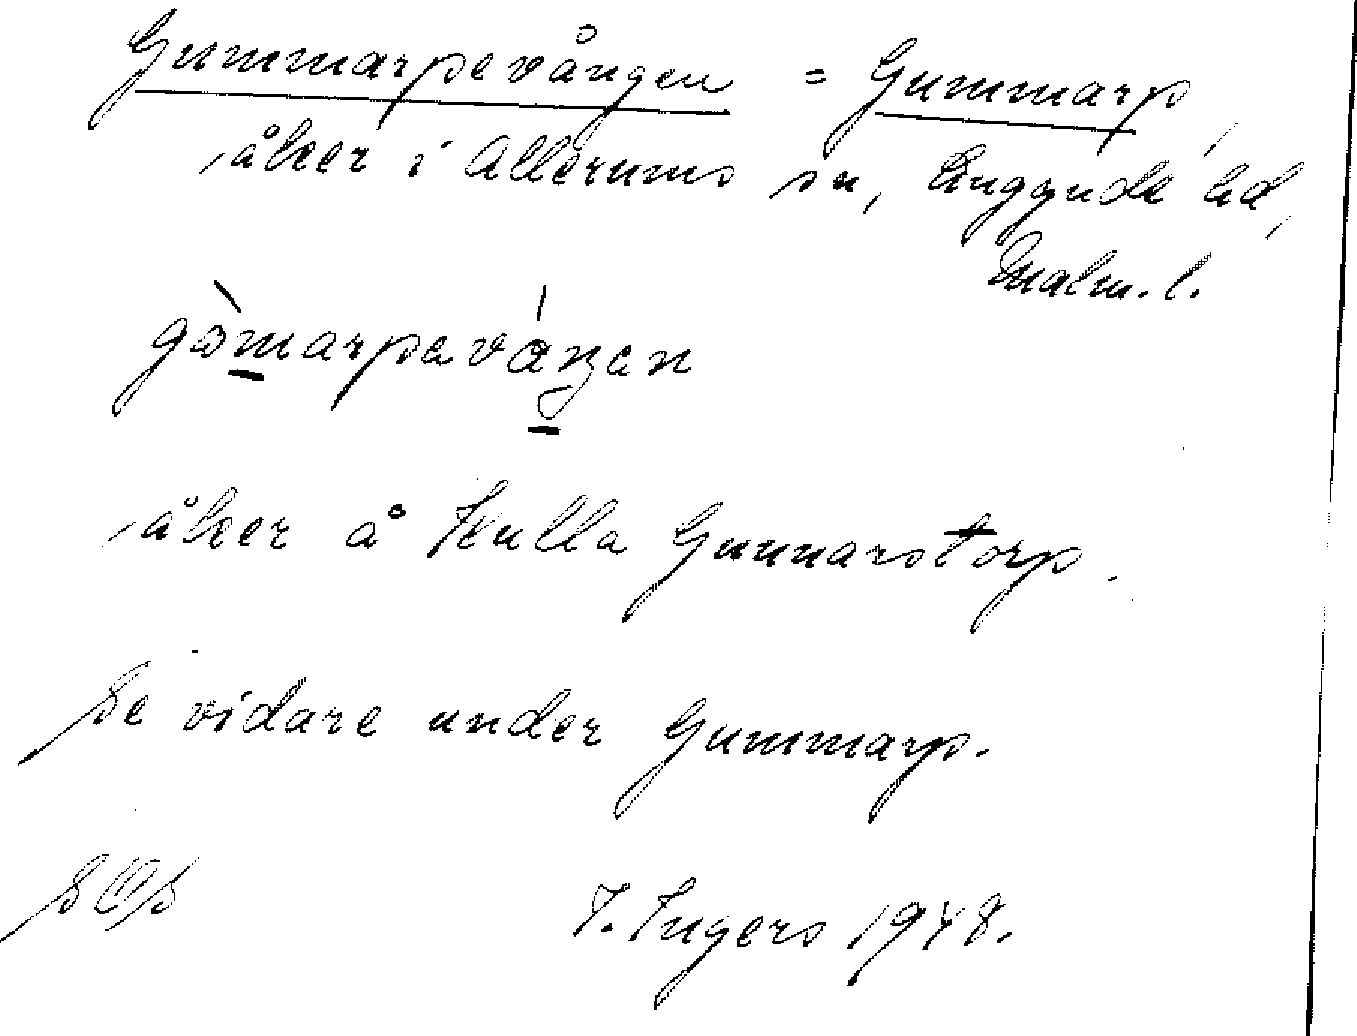 Gummarpevången = Gummarp,
åker i Allerums sn, Luggude hd,
Malm. l.
gòmarpaváŋen
åker å Kulla Gunnarstorp.
Se vidare under Gummarp.
I. Ingers 1948.